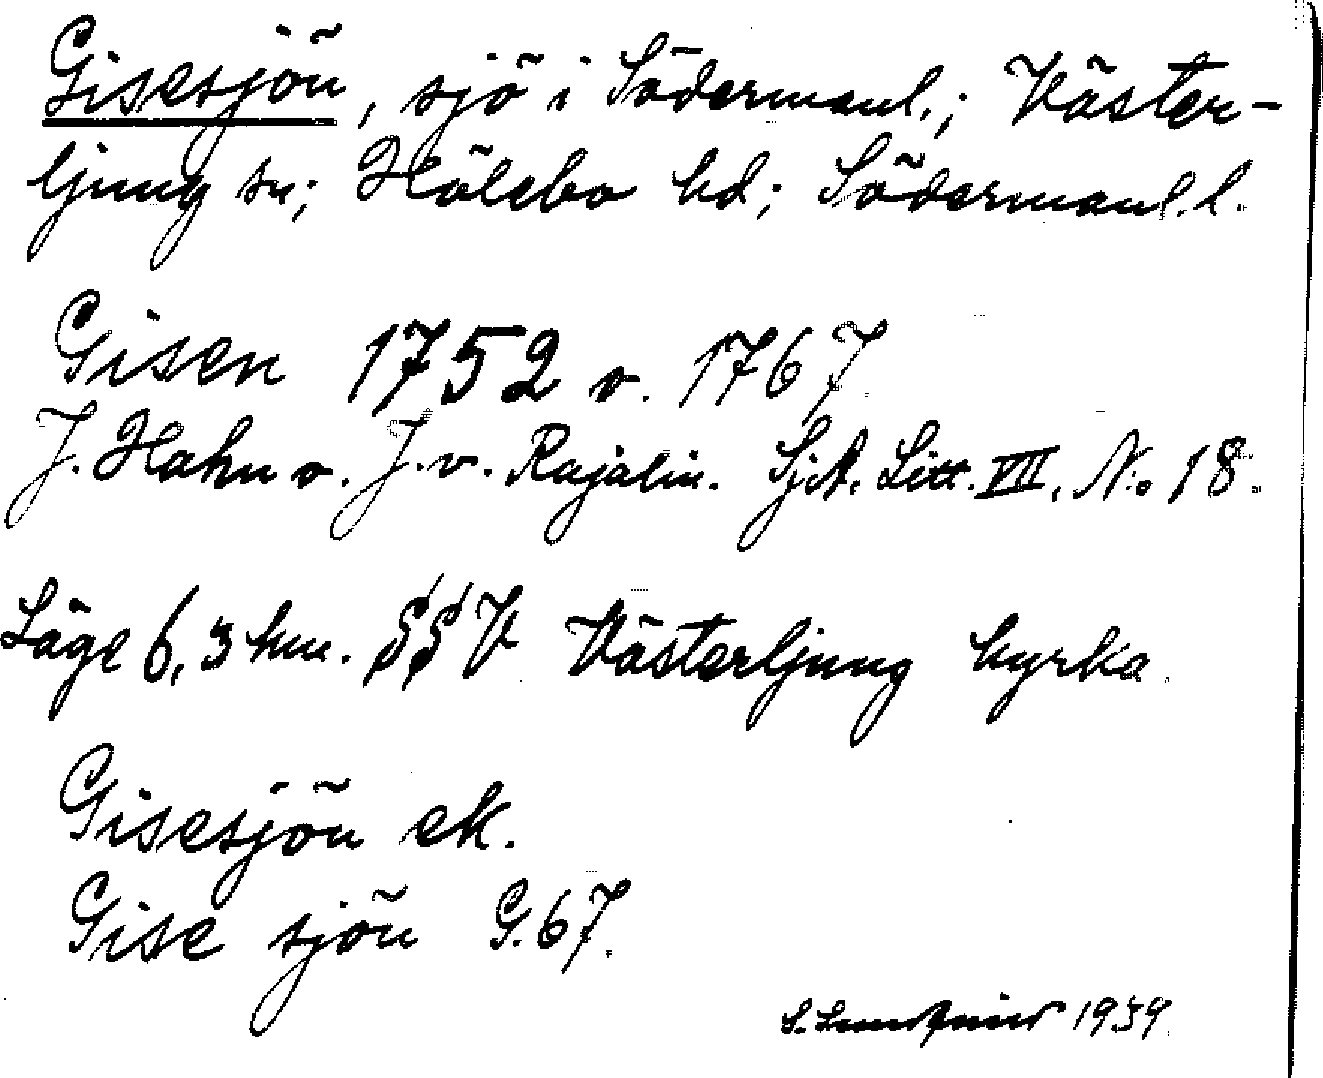 Gisesjön, sjö i Södermanl.; Väster-
ljung sn; Hölebo hd; Södermanl. l.
Gisen 1752 o. 1767
J. Hahn o. J. v. Rajalin. SjA. Litt. VIII. No 18.
Läge 6,3 km. SSV Västerljung kyrka.
Gisesjön ek.
Gise sjön G. 67.
1939